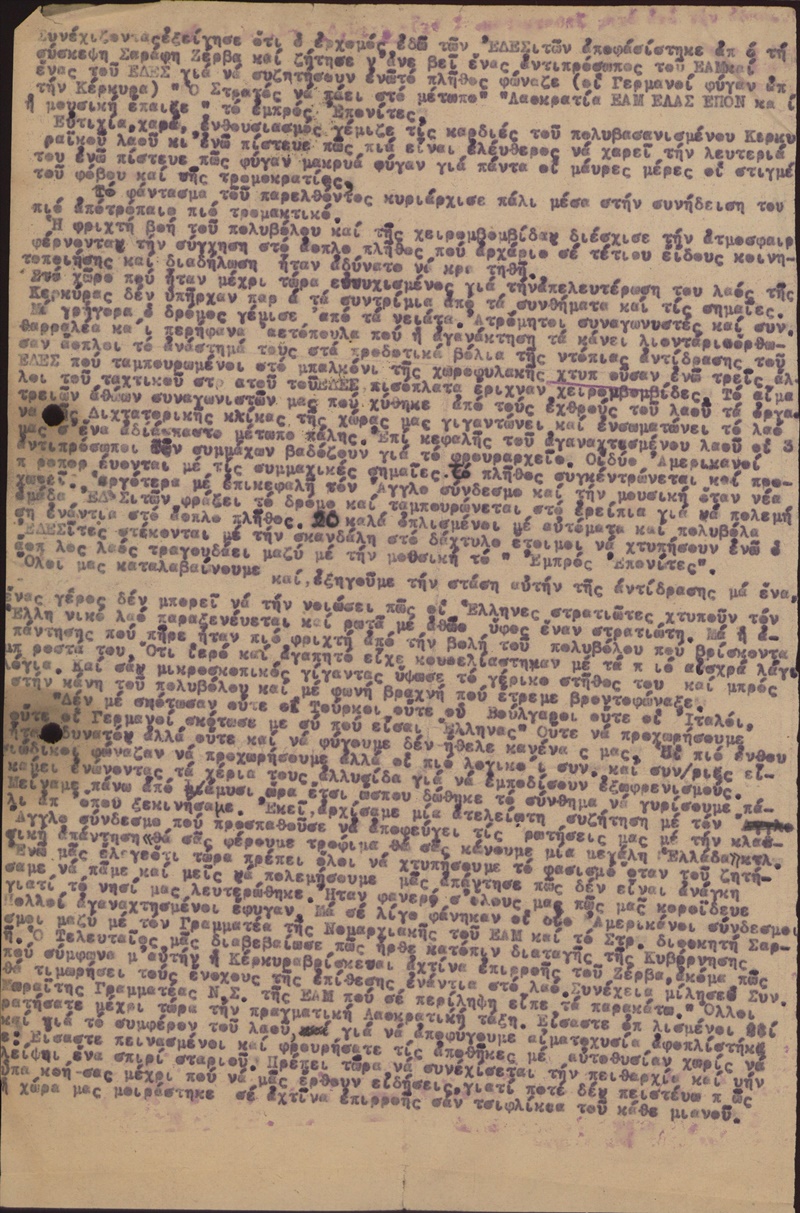 Συνέχιζονταςἐξείγησε ὅτι ὁ ἐρχομός ἐδῶ τῶν ἘΔΕΣιτῶν ἀποφάσίστηκε ἀπ ό τή
σύσκεψη Σαράφη Ζέρβα καί ζήτησε ν'άνε βεῖ ἕνας ἀντιπρόσωπος τοῦ ΕΑΜκαί
ἕνας τοῦ ΕΔΕΣ γιά νά συζητήσουν ἐνῶτό πλῆθος φώναζε (οἱ Γερμανοί φύγαν ἀπ
τήν Κέρκυρα) " Ὁ Στρατός νά πάει στό μέτωπο" "Λαοκρατία ΕΑΜ ΕΛΑΣ ΕΠΟΝ κα ί
ἡ μουσική ἔπαιζε " τό ἐμπρός Ἐπονίτες.
Εὐτιχία,χαρά, ἐνθουσιασμός γέμιζε τίς καρδιές τοῦ πολυβασανισμένου Κερκυ
ραϊκοῦ λαοῦ κι ἐνῶ πίστευε πώς πιά εἶναι ἐλεύθερος νά χαρεῖ τήν λευτεριά
του ἐνῶ πίστευε πῶς φύγαν μακρυά φύγαν γιά πάντα οἱ μαύρες μέρες οἱ στιγμέ
τοῦ φόβου καί τῆς τρομοκρατίας,
Τό φάντασμα τοῦ παρελθόντος κυριάρχισε πάλι μέσα στήν συνήδειση του
πιό ἀπότρόπαιο πιό τρομακτικό.
Ἡ φριχτή βοή τοῦ πολυβόλου καί τῆς χειρομβομβίδας διέσχισε τήν ἀτμοσφαιρ
φέρνοντας τήν σύγχηση στό ἄοπλο πλῆθος πού ἀρχάριο σέ τέτιου εἴδους κοινη-
τοποιήσης καί διαδήλωση ἤταν ἀδύνατο νά κρα τηθῆ.
Στό χῶρο πού ἤταν μέχρι τώρα εὐτυχισμένος γιά τήνἀπελευτέρωση του λαός τῆς
Κερκύρας δέν ὑπῆρχαν παρ ά τά συντρίμια ἀπό τά συνθήματα καί τίς σημαῖες.
Μά γρήγορα ὁ δρόμος γέμισε ἀπό τά νειάτα. Ἀτρόμητοι συναγωνυστές καί συν.
θαρραλέα κα ί περήφανα ἀετόπουλα πού ἡ ἀγανάκτηση τά κάνει λιοντάριαὀρθω-
σαν ἄοπλοι τό ἀνάστημά τους στά προδοτικά βόλια τῆς ντόπιας ἀντίδρασης τοῦ
ΕΔΕΣ πού ταμπουρωμένοι στό μπαλκόνι τῆς χωροφυλακῆς χτυπ οῦσαν ἐνῶ τρεῖς ἄλ
λοι τοῦ ταχτικοῦ στρ ατοῦ τοῦΕΔΕΣ πισόπλατα ἔριχναν χειρομβομβίδες. Τό αἷμα
τρειῶν ἀθώων συναγωνιστῶν μας πού χύθηκε ἀπό τούς ἐχθρούς τοῦ λαοῦ τά ὄργα
να τῆς Διχτατορικῆς κλίκας τῆς χώρας μας γιγαντώνει καί ἐνσωματώνει τό λαό
μας σ'ἕνα ἀδιάσπαστο μέτωπο πάλης. Ἐπί κεφαλῆς τοῦ ἀγαναχτισμένου λαοῦ οἱ 3
ἀντιπρόσωποι τῶν συμμάχων βαδίζουν γιά τό φρουραρχεῖο. Οἱδύο Ἀμερικανοί
π ροπορ έυονται μέ τίς συμμαχικές σημαῖες.τό πλῆθος συγκεντρώνεται καί προ-
χωρεῖ. Ἀργότερα μέ ἐπικεφαλή τόν Ἄγγλο σύνδεσμο καί τήν μουσική ὅταν νέα
ὁμάδα ἘΔΕΣιτῶν φράζει τό δρόμο καί ταμπουρώνεται στό ἐρείπια γιά νά πολεμή
ση ἐνάντια στό ἄοπλο πλῆθος. 20 καλά ὁπλισμένοι μέ αὐτόματα καί πολυβόλα
ἘΔΕΣίτες στέκονται μέ τήν σκανδάλη στό δάχτυλο ἕτοιμοι νά χτυπήσουν ἐνῶ ὁ
ἄοπ λος λαός τραγουδάει μαζύ μέ τήν μουσική τό " Ἐμπρός Ἐπονίτες".
Ὅλοι μας καταλαβαίνουμε
καί,ἐξηγοῦμε τήν στάση αὐτήν τῆς ἀντίδρασης μά ἕνα,
ἕνας γέρος δέν μπορεῖ νά τήν νοιώσει πῶς οἱ Ἕλληνες στρατιῶτες χτυποῦν τόν
Ἕλλη νικό λαό παραξενέυεται καί ρωτᾶ μέ ἀθῶο ὕφος ἕναν στρατιώτη. Μά ἡ ἀ-
πάντησης πού πῆρε ἤταν πιό φριχτή ἀπό τήν βολή τοῦ πολυβόλου πού βρίσκοντα
μπ ροστά του. Ὅτι ἱερό καί ἀγαπητό εἶχε κουρελιάστηκαν μέ τά π ιό αἰσχρά λάγι
λόγια. Καί σάν μικροσκοπικός γίγαντας ὕψωσε τό γέρικο στῆθος του καί μπρός
στήν κάνη τοῦ πολυβόλου καί μέ φωνή βραχνή πού ἔτρεμε βροντοφώναξε.
"Δέν μέ σκότωσαν οὔτε οἱ Τοῦρκοι οὔτε οὗ Βούλγαροι οὔτε οἱ Ἰταλοί,
οὔτε οἱ Γερμανοί σκότωσε με σύ πού εἶσαι Ἕλληνας" Οὔτε νά προχωρήσουμε
ἤταν δυνατόν ἀλλά οὔτε καί νά φύγουμε δέν ἤθελε κανένα ς μας. Οἱ πιό ἐνθου
σιώδικοι φώναζαν νά προχωρήσουμε ἀλλά οἱ πιό λογικοί συν. καί συν/ριες εἴ-
καμει ἑνώνοντας τά χέρια τους ἀλλυσίδα γιά νά ἐμποδίσουν ἐξωφρενισμούς.
Μείναμε πάνω ἀπό μιάμυσι ὥρα ἔτσι ὥσπου δώθηκε τό σύνθημα νά γυρίσουμε πά-
λι ἀπ' ὅπου ξεκινήσαμε. Ἐκεῖ ἀρχίσαμε μία ἀτελείωτη συζήτηση μέ τόν
Ἄγγλο σύνδεσμο πού προσπαθοῦσε νά ἀποφεύγει τίς ρωτήσεις μας μέ τήν κλασ-
σική ἀπάντηση«θά σᾶς φέρουμε τρόφιμα θά σᾶς κάνουμε μία μεγάλη Ἑλλάδα»κτλ.
Ἐνῶ μᾶς ἔλεγεὅτι τώρα πρέπει ὅλοι νά χτυπήσουμε τό φασισμό ὅταν τοῦ ζητή-
σαμε νά πᾶμε καί μεῖς νά πολεμήσουμε μᾶς ἀπάντησε πῶς δέν εἶναι ἀνάγκη
γιατί τό νησί μας λευτερώθηκε. Ἤταν φανερό σ'ὅλους μας πῶς μᾶς κοροΐδευε
Πολλοί ἀγαναχτησμένοι ἔφυγαν. Μά σέ λίγο φάνηκαν οἱ δύο Ἀμερικανοί σύνδεσμοι
σμοι μαζύ μέ τόν Γραμματέα τῆς Νομαρχιακῆς τοῦ ΕΑΜ καί τό Στρ. διοικητή Σαρ-
ῆ. Ὁ Τελευταῖος μᾶς διαβεβαίωσε πῶς ἦρθε κατόπιν διαταγῆς τῆς Κυβέρνησης
πού σύμφωνα μ'αὐτήν ἡ Κέρκυραβρίσκεται ἀχτίνα ἐπιρροῆς τοῦ Ζέρβα,ἀκόμα πῶς
θά τιμωρήσει τούς ἐνόχους τῆς ἐπίθεσης ἐνάντια στό λαό.Συνέχεια μίλησεὁ Συν.
Μωραΐτης Γραμματέας Ν.Σ. τῆς ΕΑΜ πού σέ περίληψη εἶπε τά παρακάτω." Ὅλλοι
ρατήσατε μέχρι τώρα τήν πραγματική Λαοκρατική τάξη. Εἴσαστε ὁπ λισμένοι
καί γιά τό συμφέρον τοῦ λαοῦ, γιά νά ἀποφύγουμε αἱματοχυσία ἀφοπλίστηκα
ε. Εἴσαστε πεινασμένοι καί φρουρήσατε τίς ἀποθῆκες μέ αὐτοθυσίαν χωρίς νά
λείψει ἕνα σπιρί σταριοῦ. Πρέπει τώρα νά συνέχίσεται τήν πειθαρχία καί τήν
ὑπα κοή σας μέχρι πού νά μᾶς ἔρθουν εἰδήσεις,γιατί ποτέ δέν πειστέυω π ῶς
ἡ χώρα μας μοιράστηκε σέ ἀχτίνα ἐπιρροῆς σάν τσιφλίκεα τοῦ κάθε μιανοῦ.